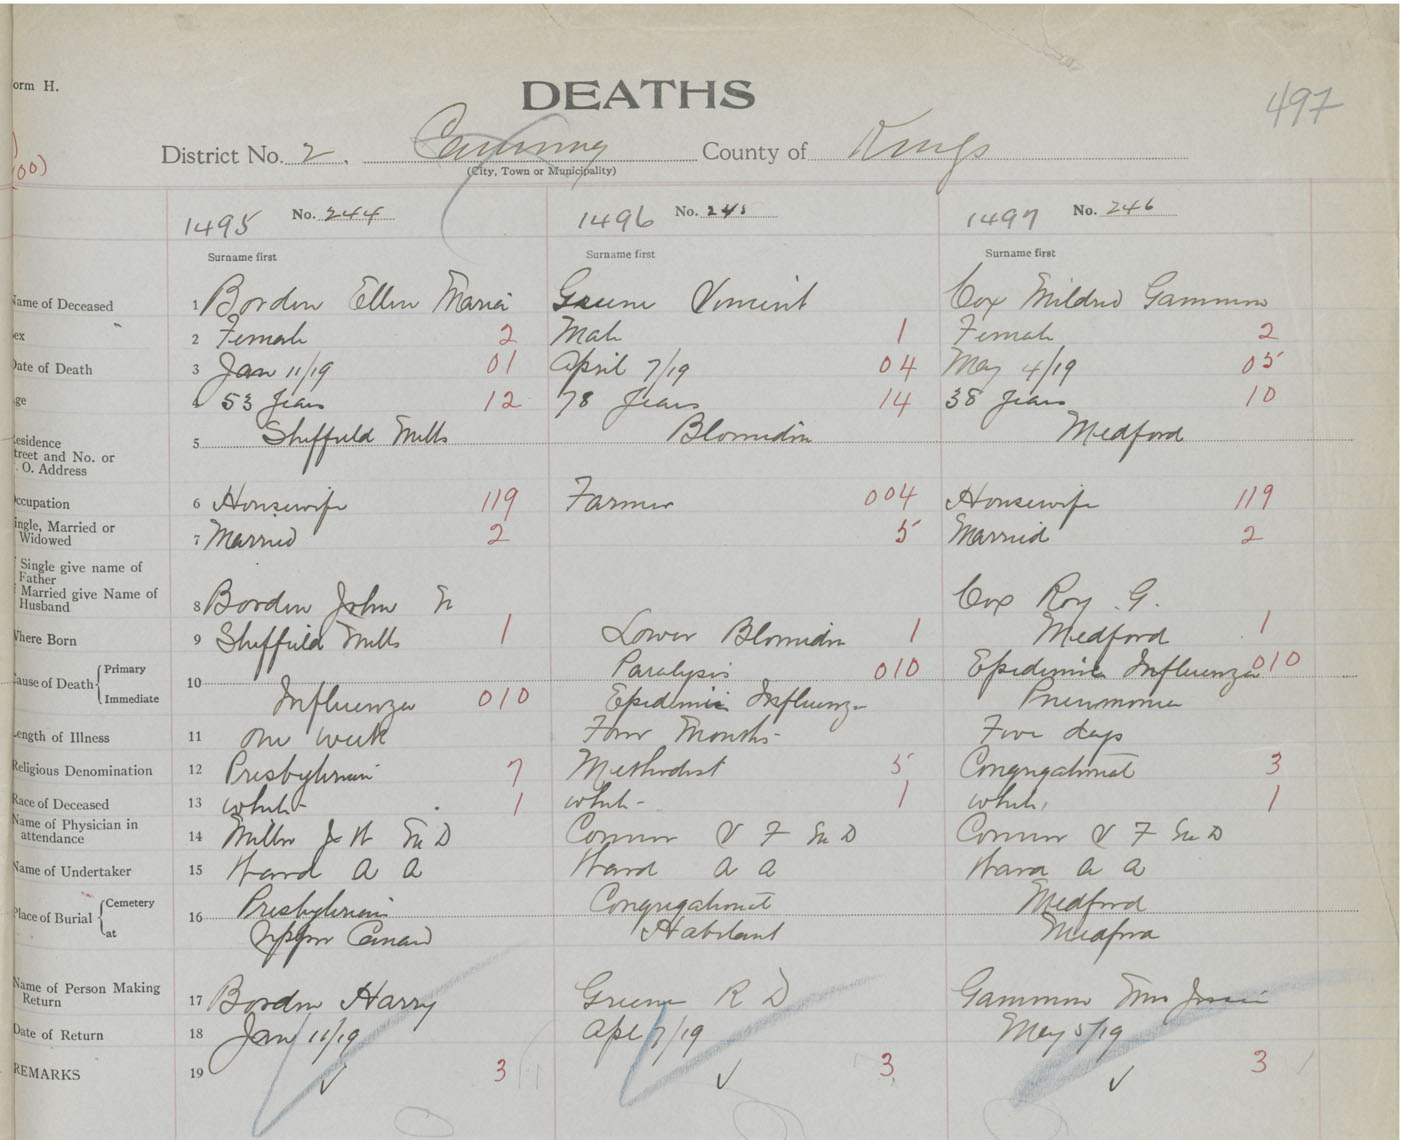 orm H.
DEATHS
497
00)
District No. 2. Canning County of Kings
(City, Town or Municipality)
1495 No. 244 1496 No. 245 1497 No. 246
Surname first Surname first Surname first
Name of Deceased 1 Borden Ellen Maria Greene Vincent Cox Mildred Gammon
ex 2 Female 2 Male 1 Female 2
Date of Death 3 Jan 11/19 01 April 7/19 04 May 4/19 05
ge 4 53 Years 12 78 Years 14 38 Years 10
esidence 5 Sheffield Mills Blomidon Medford
treet and No. or
. O. Address
ccupation 6 Housewife 119 Farmer 004 Housewife 119
ingle, Married or
Widowed 7 Married 2 5 Married 2
Single give name of
Father
Married give Name of
Husband 8 Borden John Cox Roy G.
Where Born 9 Sheffield Mills 1 Lower Blomidon 1 Medford 1
Cause of Death Primary 10 Paralysis 010 Epidemic Influenza 010
Immediate Influenza 010 Epidemic Influenza Pneumonia
Length of Illness 11 one week Four Months Five days
Religious Denomination 12 Presbyterian 7 Methodist 5 Congregational 3
Race of Deceased 13 white 1 white 1 white 1
Name of Physician in
attendance 14 Miller J W M D Connor V F M D Connor V F M D
Name of Undertaker 15 Ward A A Ward A A Ward A A
Place of Burial Cemetery 16 Presbyterian Congregational Medford
at Upper Canard Habitant Medford
Name of Person Making
Return 17 Borden Harry Greene R D Gammon Mrs Jessie
Date of Return 18 Jan 11/19 Apl 7/19 May 5/19
REMARKS 19 ✓ 3 ✓ 3 ✓ 3